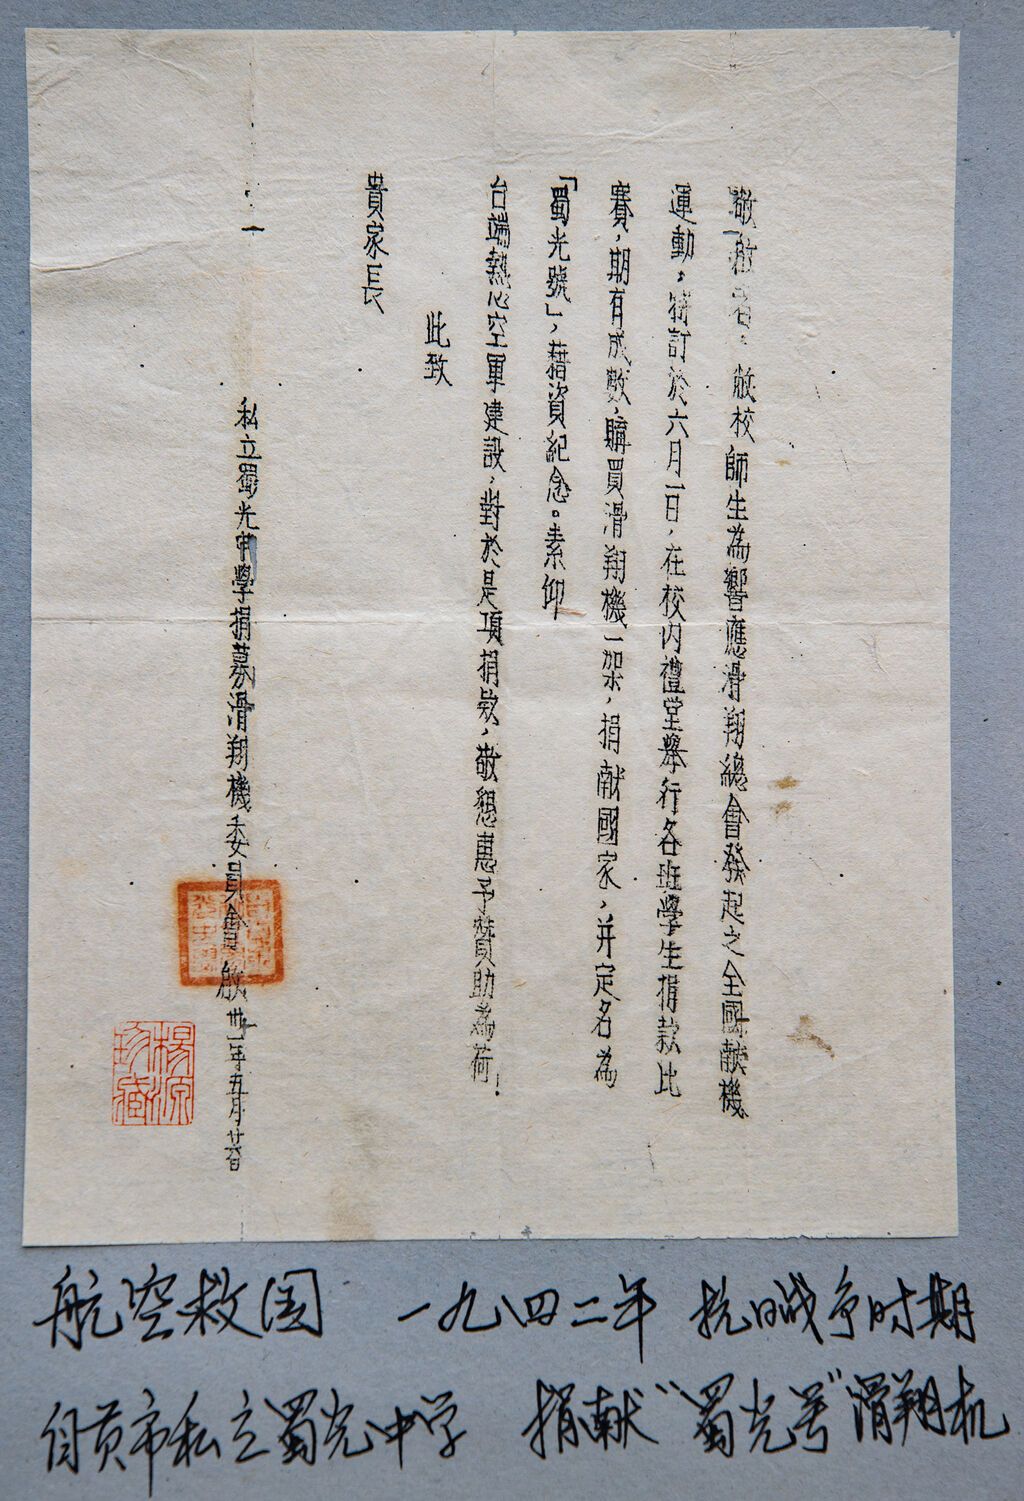 敬啟者，敝校師生為響應滑翔總會發起之全國獻機
運動，特訂於六月一日，在校內禮堂舉行各班學生捐款比
賽，期有成數，購買滑翔機一架，捐献國家，并定名為
「蜀光號」，藉資紀念。素仰
台端熱心空軍建設，對於是項捐欵，敬懇惠予贊助為荷！
此致
貴家長
私立蜀光中學捐募滑翔機委員會啟 卅一年五月廿
楊源珍藏
航空救国 一九四二年 抗日战争时期
自贡市私立蜀光中学 捐献“蜀光号”滑翔机